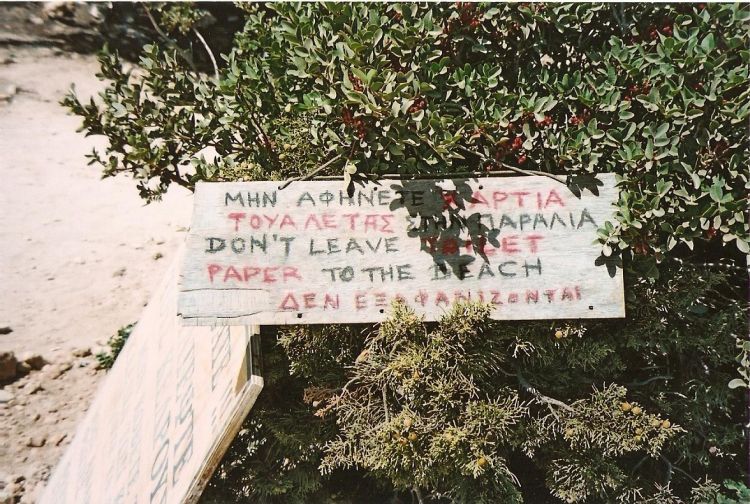 ΜΗΝ ΑΦΗΝΕΤΕ ΧΑΡΤΙΑ
ΤΟΥΑΛΕΤΑΣ ΣΤΗΝ ΠΑΡΑΛΙΑ
DON'T LEAVE TOILET
PAPER TO THE BEACH
ΔΕΝ ΕΞΑΦΑΝΙΖΟΝΤΑΙ